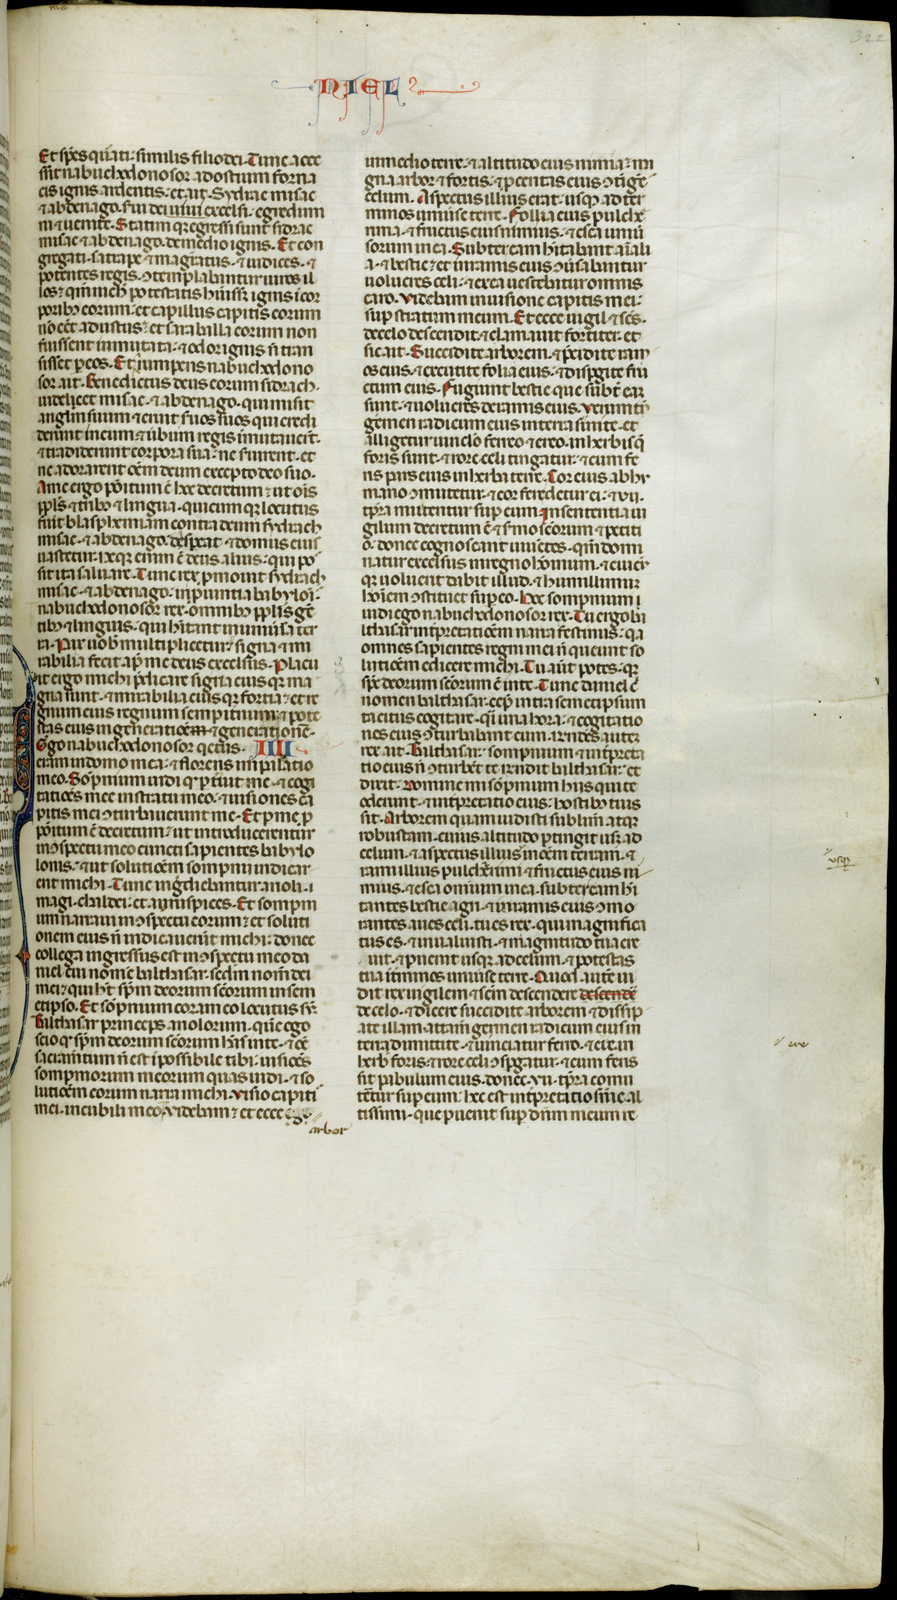 322
NIEL
Et sp̄es q̄uarti: similis filio dei. Tunc acces
sit nabuchodonosor ad ostium forna
cis ignis ardentis. et ait. Sydrac misac
⁊ abdenago. serui dei uiui excelsi. egredimi
ni ⁊ uenite. Statim q̄ egressi sunt sidrac
misac ⁊ abdenago. de medio ignis. Et con
gregati satrape ⁊ magr̄atus. ⁊ iudices. ⁊
potentes regis. ↄtemplabantur uiros il
los: qm̄ nich̄ potestatis hūiss; ignis ī cor
porib; eorum: et capillus capitis eorum
nō eēt adustus: et sarabilla eorum non
fuissent inmutata: ⁊ odor ignis n̄ tran
sisset ꝑ eos. Et erumpens nabuchodono
sor ait. Benedictus deus eorum sidrach.
uidelicet misac. ⁊ abdenago. qui misit
angl̄m suum ⁊ eruit seruos suos qui credi
derunt in eum: ⁊ ūbum regis inmutauer̄t.
⁊ tradiderunt corpora sua: ne seruirent. et
ne adorarent oēm deum excepto deo suo.
A me ergo positum ē hoc decretum: ut oīs
ppl̄s ⁊ trib; ⁊ lingua. quicumq; locutus
fuit blasphemiam contra deum sydrach
misac. ⁊ abdenago. dispeat ⁊ domus eius
uastetur. neq; enim ē deus alius. qui po
sit ita saluare. Tunc rex ꝓmouit sydrach
misac. ⁊ abdenago. in ꝓuintia babylois.
nabuchodonosor rex. omnib; ppl̄is gē
tib; ⁊ linguis. qui hītant in uniuersa ter
ra. Pax uob̄ multiplicetur. signa ⁊ mi
rabilia fecit ap̄ me deus excelsus. Placu
it ergo michi p̄dicare signa eius q; ma
gna sunt. ⁊ mirabilia eius q; fortia: et re
gnum eius regnum sempit̄num: ⁊ pote
stas eius in generatiōem ⁊ generationē.
Ego nabuchodonosor quetus IIII
eram in domo mea. ⁊ florens in palatio
meo. Sompnium uidi q̄ ꝑt̄ruit me. ⁊ cogi
tatiōes mee in stratu meo. ⁊ uisiones ca
pitis mei ↄturbauerunt me. Et ꝑ me p
positum ē decretum: ut introducerentur
in ↄspectu meo cuncti sapientes babylo
lonis. ⁊ ut solutiōem sompnii indicar
ent michi. Tunc ingrediebantur arioli. ⁊
magi. chaldei. et aruspices. Et sompni
um narraui in ↄspectu eorum: et soluti
onem eius n̄ indicauerūt michi: donec
collega ingressus est in ↄspectu meo da
niel cui nomē balthasar. sc̄dm nom̄ dei
mei: qui h̄t sp̄m deorum sc̄orum in sem
etipso. Et sompnium coram eo locutus sū.
Balthasar princeps ariolorum. quē ego
scio q̄ sp̄m deorum sc̄orum h̄is in te. ⁊ oē
sacramtum n̄ est īpossibile tibi: uisiōes
sompniorum meorum quas uidi. ⁊ so
lutiōem eorum narra michi. Visio capiti
mei. in cubili meo. Videbam: et ecce
arbor
in medio terre. ⁊ altitudo eius nimia: ma
gna arbor ⁊ fortis. ⁊ ꝓceritas eius ↄtigēs
celum. Aspectus illius erat. usq; ad ter
minos uniuse terre. Follia eius pulche
rima. ⁊ fructus eius nimius. ⁊ esca uniū
sorum in ea. Subter eam hītabant aīali
a. ⁊ bestie: et in ramis eius ↄuersabantur
uolucres celi: ⁊ ex ea uescebatur omnis
caro. Videbam in uisione capitis mei:
sup stratum meum. Et ecce uigil ⁊ sc̄s.
de celo descendit. ⁊ clamauit fortiter. et
sic ait. Succidite arborem. ⁊ p̄cidite ram
os eius. ⁊ excutite folia eius. ⁊ dispgite fru
ctum eius. Fugiant bestie que subt̄ ear
sunt. ⁊ uolucres de ramis eius. Verumt̄n
germen radicum eius in terra sinite. et
alligetur uinclo ferreo ⁊ ereo. in herbis q̄
foris sunt. ⁊ rore celi tingatur: ⁊ cum fe
ris pars eius in herba terre. Cor eius ab hu
mano ↄmutetur. ⁊ cor fere detur ei: ⁊ vii.
tp̄ra mutentur sup eum. In sententia ui
gilum decretum ē ⁊ s̄mo sc̄orum ⁊ petiti
o. donec cognoscant uiuētes. qm̄ domi
natur excelsus in regno hoīnum. ⁊ cuicū
q; uoluerit dabit illud. ⁊ humillimum
hoīem ↄstituet sup eo. Hoc sompnium
uidi ego nabuchodonosor rex. Tu ergo ba
lthasar int̄pretatiōem narra festinus: q̄a
omnes sapientes regni mei n̄ queunt so
lutiōem edicere michi. Tu aūt potes. q;
sp̄c deorum sc̄orum ē in te. Tunc daniel ē
nomen balthasar. cep̄ intra semetipsum
tacitus cogitare. q̄i una hora: ⁊ cogitatio
nes eius ↄturbabant eum. Rn̄dēs autem
rex ait. Balthasar. sompnium ⁊ int̄preta
tio eius n̄ ↄturbēt te. Rn̄dit balthasar: et
dixit. Domine mi sōpnium hiis qui te
oderunt. ⁊ int̄pretatio eius: hostib; tuis
sit. Arborem quam uidisti sublimē atq;
robustam. cuius altitudo ꝑtingit usq; ad
celum. ⁊ aspectus illius in oēm terram. ⁊
rami illius pulcherrimi ⁊ fructus eius ni
mius. ⁊ esca omnium in ea. subter eam hi
tantes bestie agri. ⁊ in ramis eius ↄmo
rantes aues celi. tu es rex. qui magnifica
tus es. ⁊ inualuisti. ⁊ magnitudo tua cre
uit. ⁊ ꝑuenit usq; ad celum. ⁊ potestas
tua in t̄minos uniuse terre. Quod autē ui
dit rex uigilem ⁊ sc̄m descendere descende
de celo. ⁊ dicere succidite arborem ⁊ dissip
ate illam. attam̄ germen radicum eius in
terra dimittite. ⁊ uinciatur ferro. ⁊ ere. in
herb̄ foris: ⁊ rore celi ↄspgatur. ⁊ cum feris
sit pabulum eius. donec. vii. tp̄ra comu
tētur sup eum: hec est int̄pretatio sn̄ie al
tissimi. que puenit sup dn̄m meum re
usq;
ere